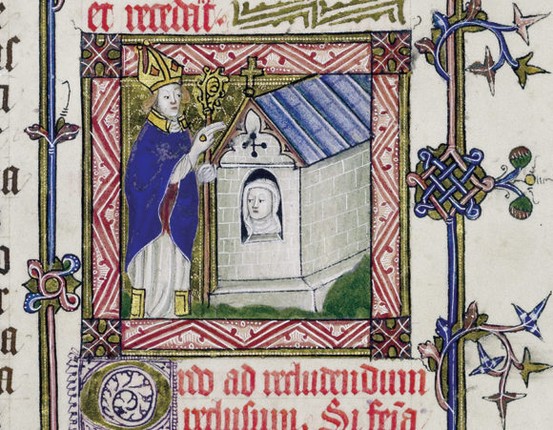 et recedat.
Ordo ad recludendum
reclusum. Si fei̅a